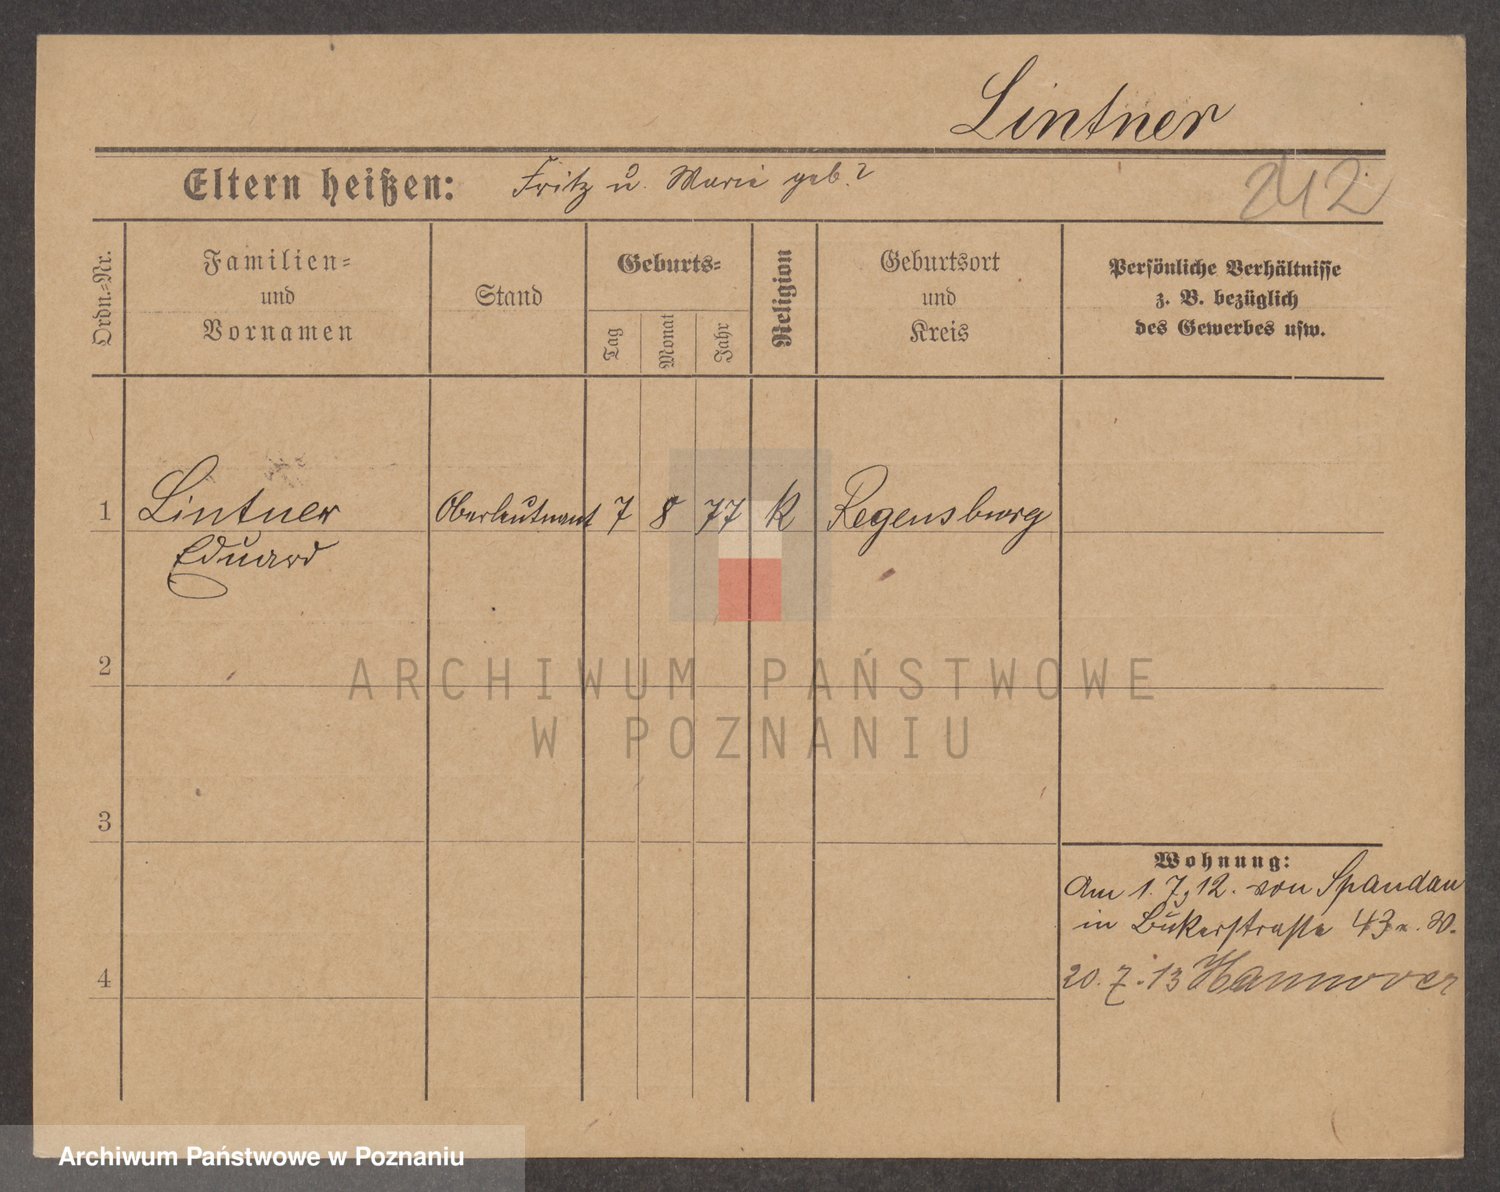 Lintner
Eltern heißen: Fritz u. Marie geb. ?
212
Ordn.-Nr.
Familien-
und
Vornamen
Stand
Geburts-
Tag
Monat
Jahr
Religion
Geburtsort
und
Kreis
Persönliche Verhältnisse
z. B. bezüglich
des Gewerbes usw.
1 Lintner Oberleutnant 7 8 77 K Regensburg
Eduard
2
3
4
Wohnung:
Am 1. 7. 12. von Spandau
in Bukerstraße 43
20. 7. 13 Hannover
ARCHIWUM PAŃSTWOWE
W POZNANIU
Archiwum Państwowe w Poznaniu